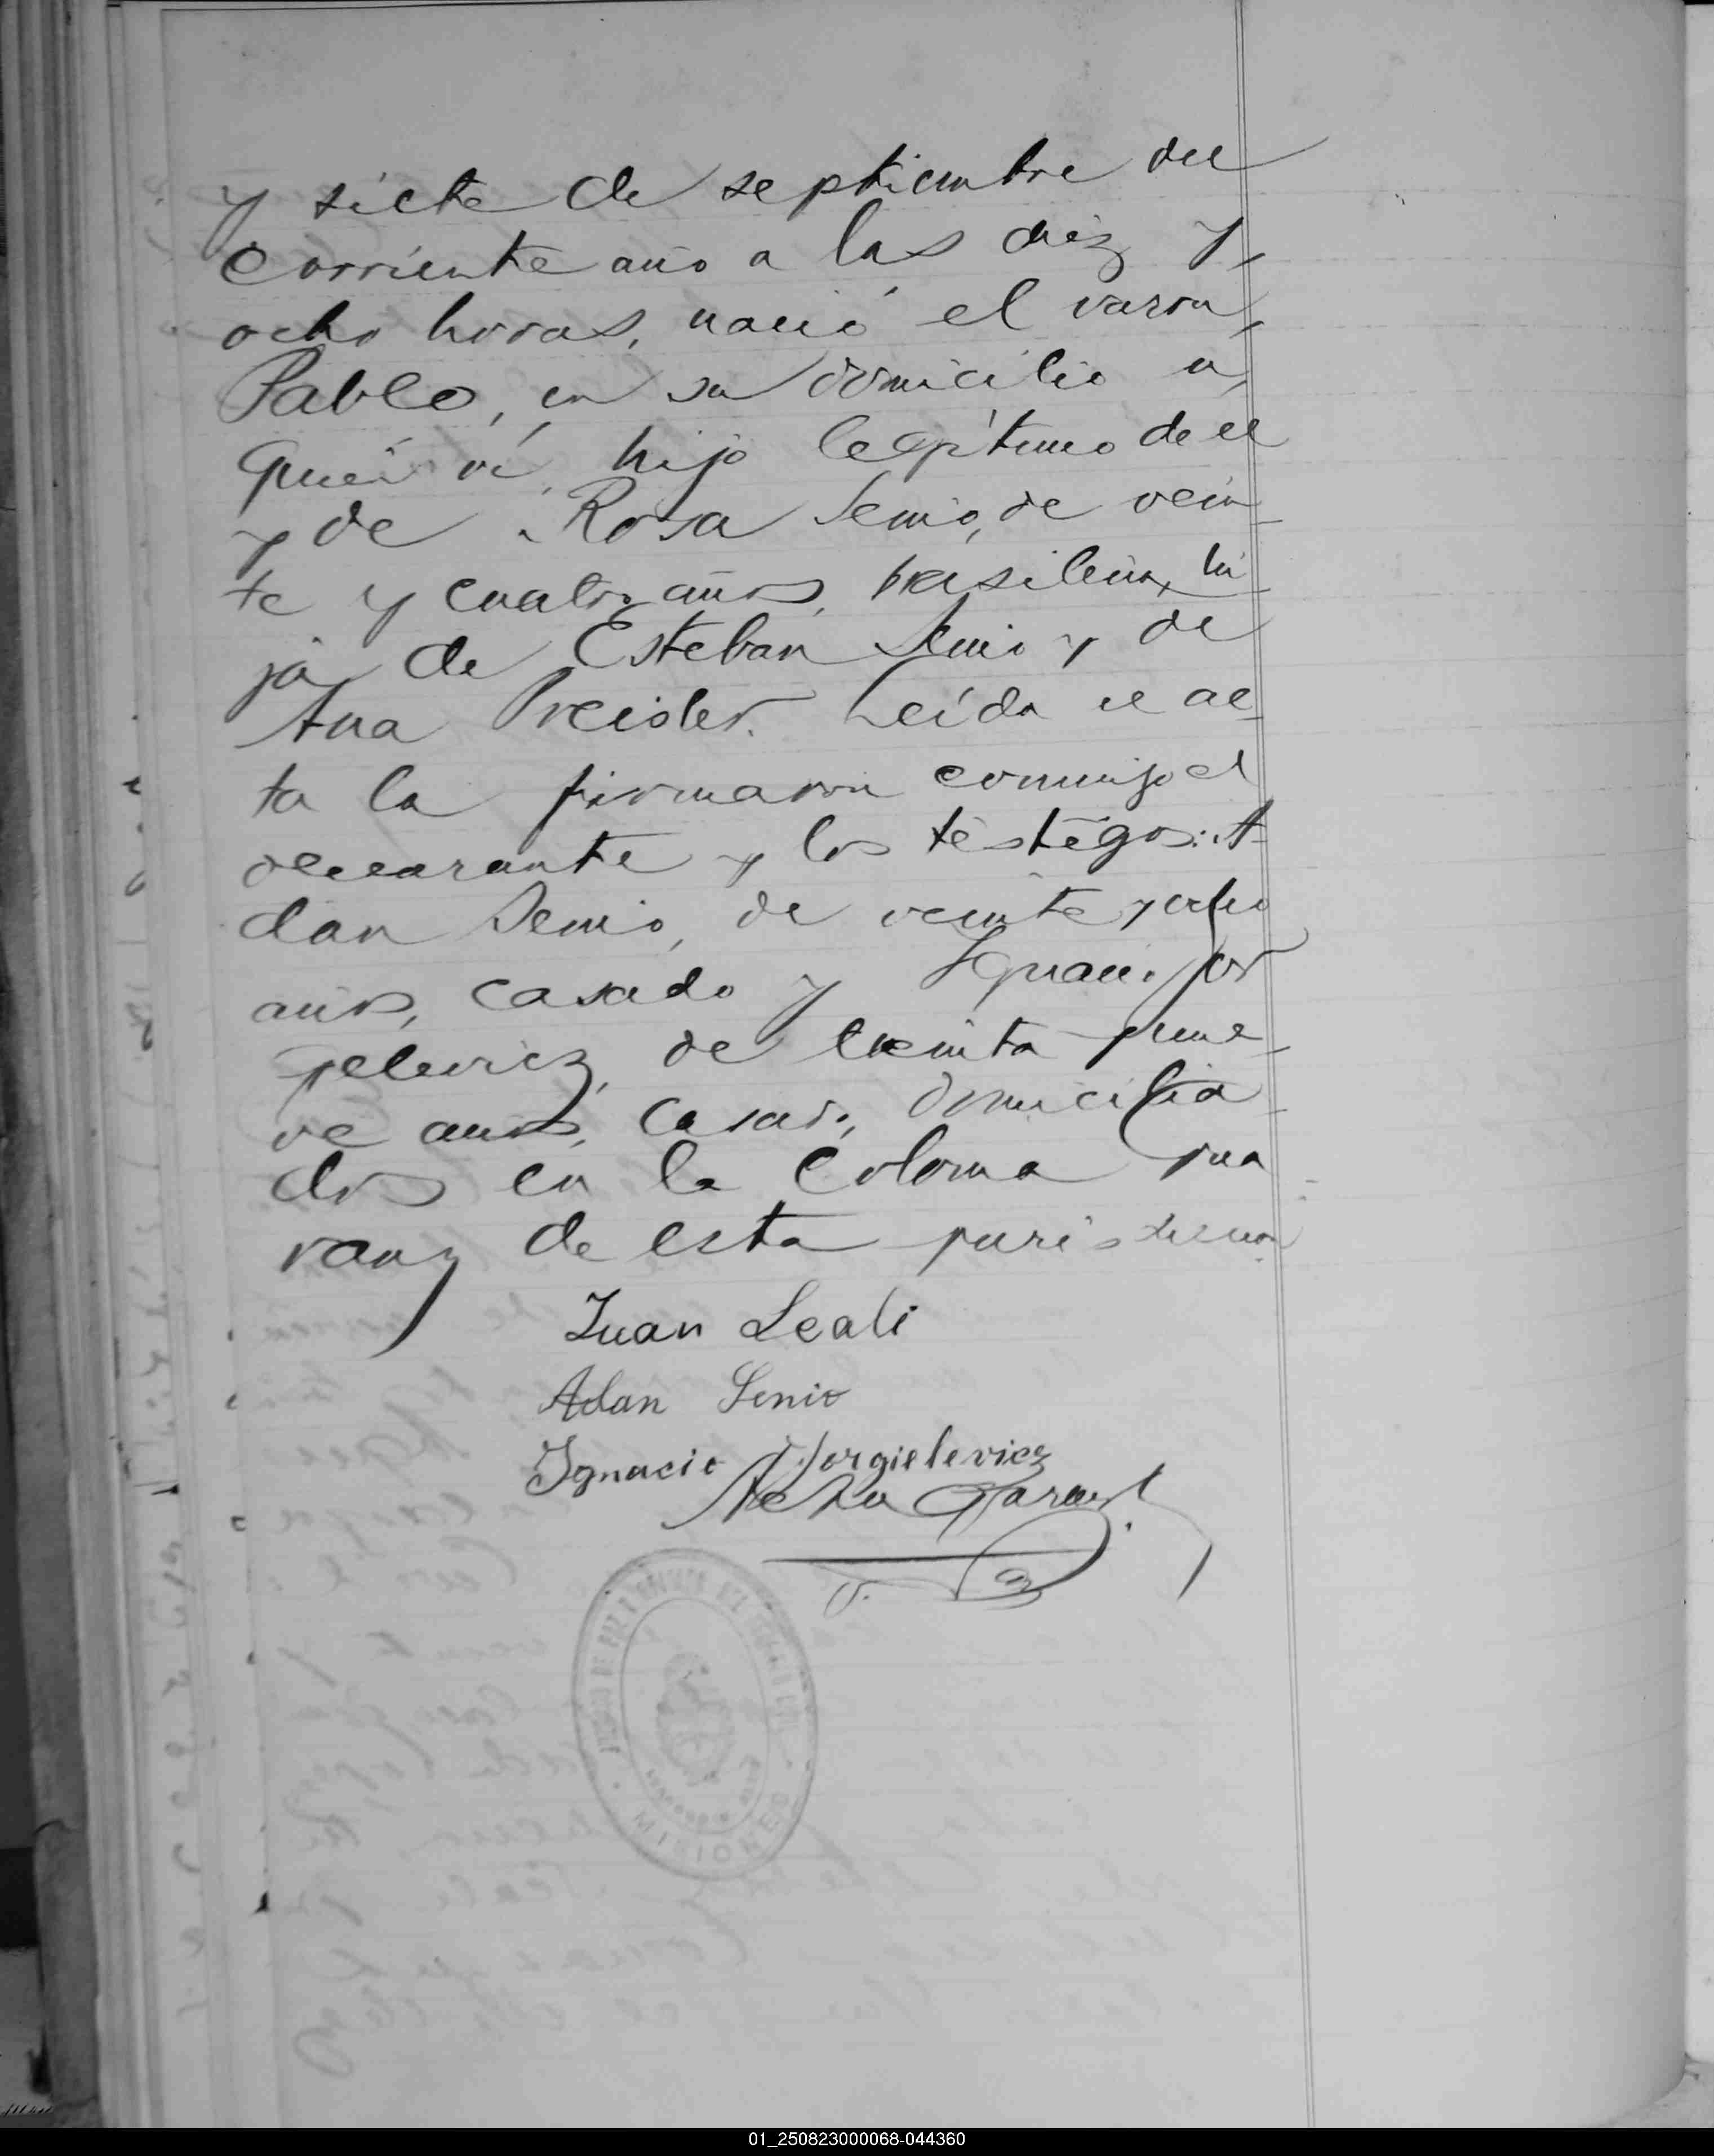 y siete de septiembre del
corriente año a las diez y
ocho horas, nació el varon,
Pablo, en su domicilio a
quien vi, hijo legítimo de el
y de Rosa Senio, de vein-
te y cuatro años, brasileña, hi-
ja de Esteban Senio y de
Ana Preisler. Leída el ac-
ta la firmaron conmigo el
declarante y los testigos: A-
dan Senio, de veinte y ocho
años, casado y Ignacio Jor
gelevicz, de treinta y nue-
ve años, casado, domicilia-
dos en la Colonia
de esta jurisdiccion
Juan Leali
Adan Senio
Ignacio Jorgielevicz
JUZGADO DE PAZ Y ENCARGADO DEL REGISTRO CIVIL
MISIONES
01_250823000068-044360